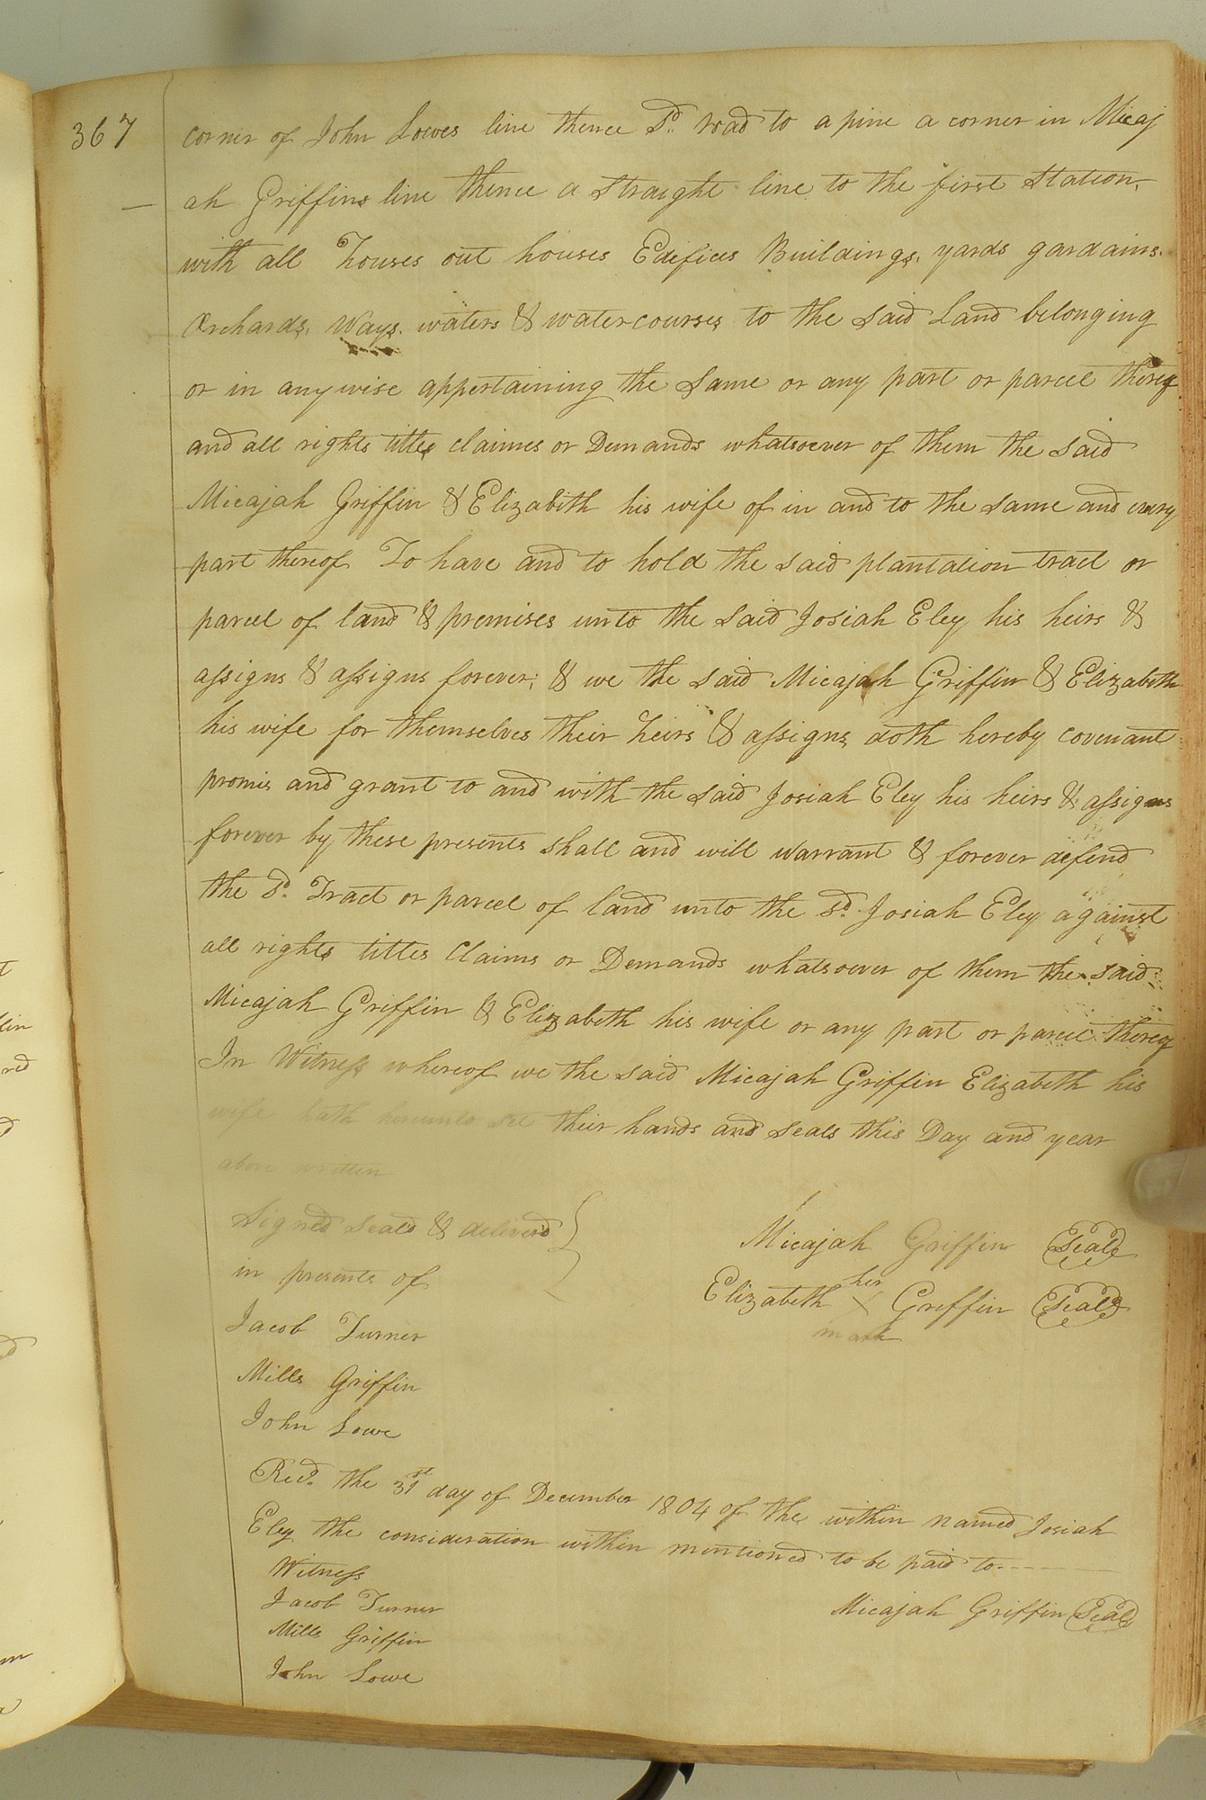 367
corner of John Lowes line thence Sd. road to a pine a corner in Micaj
ah Griffins line thence a straight line to the first Station,
with all houses out houses Edifices Buildings, yards gardains.
Orchards, Ways. waters & watercourses to the said Land belonging
or in anywise appertaining the same or any part or parcel thereof
and all rights titles claimes or Demands whatsoever of them the said
Micajah Griffin & Elizabeth his wife of in and to the same and every
part thereof To have and to hold the said plantation tract or
parcel of land & premises unto the said Josiah Eley his heirs &
assigns & assigns forever; & we the said Micajah Griffin & Elizabeth
his wife for themselves their heirs & assigns doth hereby covenant
promis and grant to and with the said Josiah Eley his heirs & assigns
forever by these presents shall and will warrant & forever defend
the Sd. Tract or parcel of land unto the Sd. Josiah Eley against
all rights titles Claims or Demands whatsoever of them the said
Micajah Griffin & Elizabeth his wife or any part or parcel thereof
In Witness whereof we the said Micajah Griffin Elizabeth his
wife hath hereunto set their hands and seals this Day and year
above written
Signed Seald & deliverd
in presents of
Micajah Griffin Seald
Elizabeth her X mark Griffin Seald
Jacob Turner
Mills Griffin
John Lowe
Recd. the 31st day of December 1804 of the within named Josiah
Eley the consideration within mentioned to be paid to
Witness
Micajah Griffin Seald
Jacob Turner
Mills Griffin
John Lowe